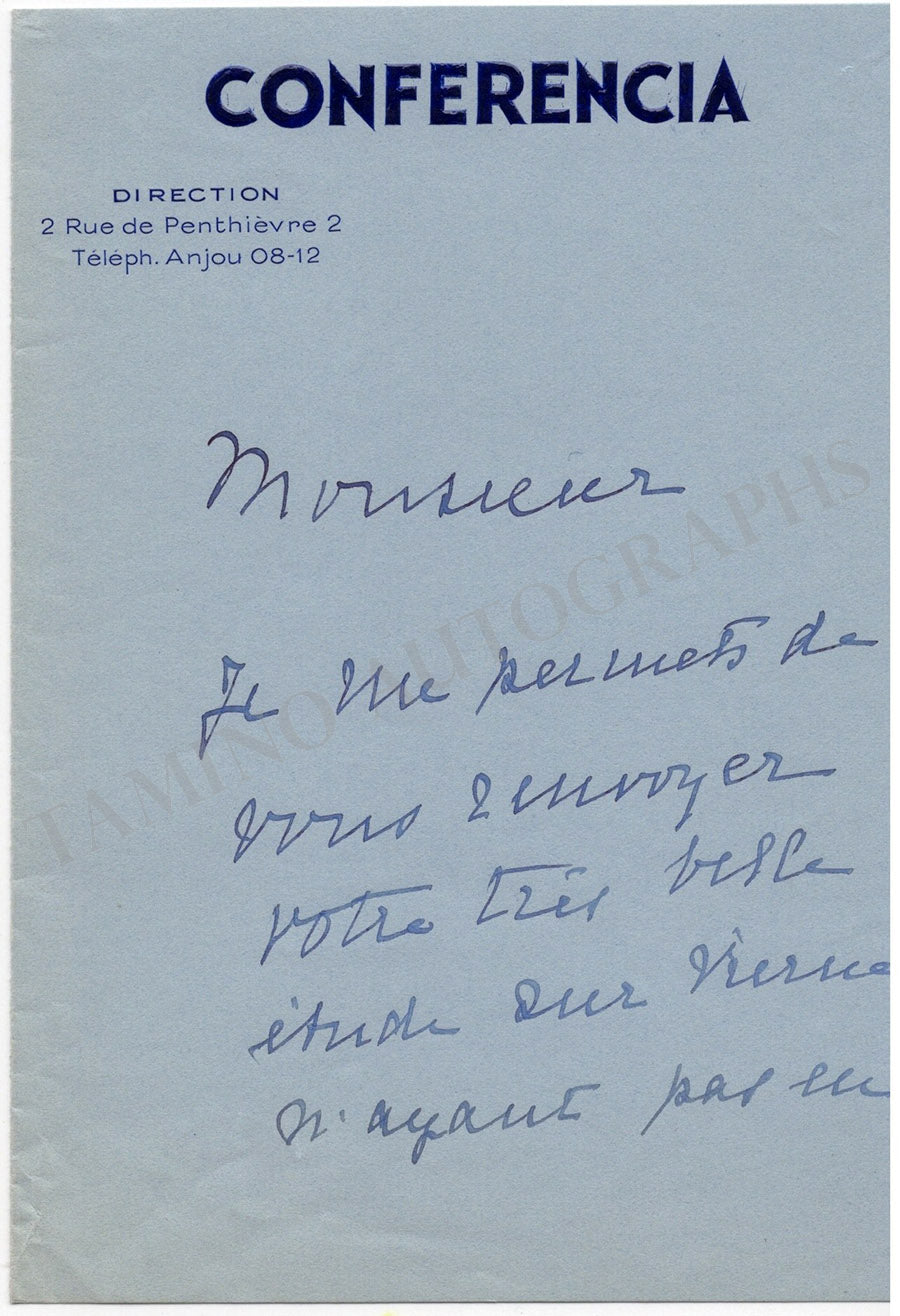 CONFERENCIA
DIRECTION
2 Rue de Penthièvre 2
Téléph. Anjou 08-12
Monsieur
Je me permets de
vous renvoyer
votre très belle
étude sur Vierne
n'ayant pas eu
TAMINO AUTOGRAPHS